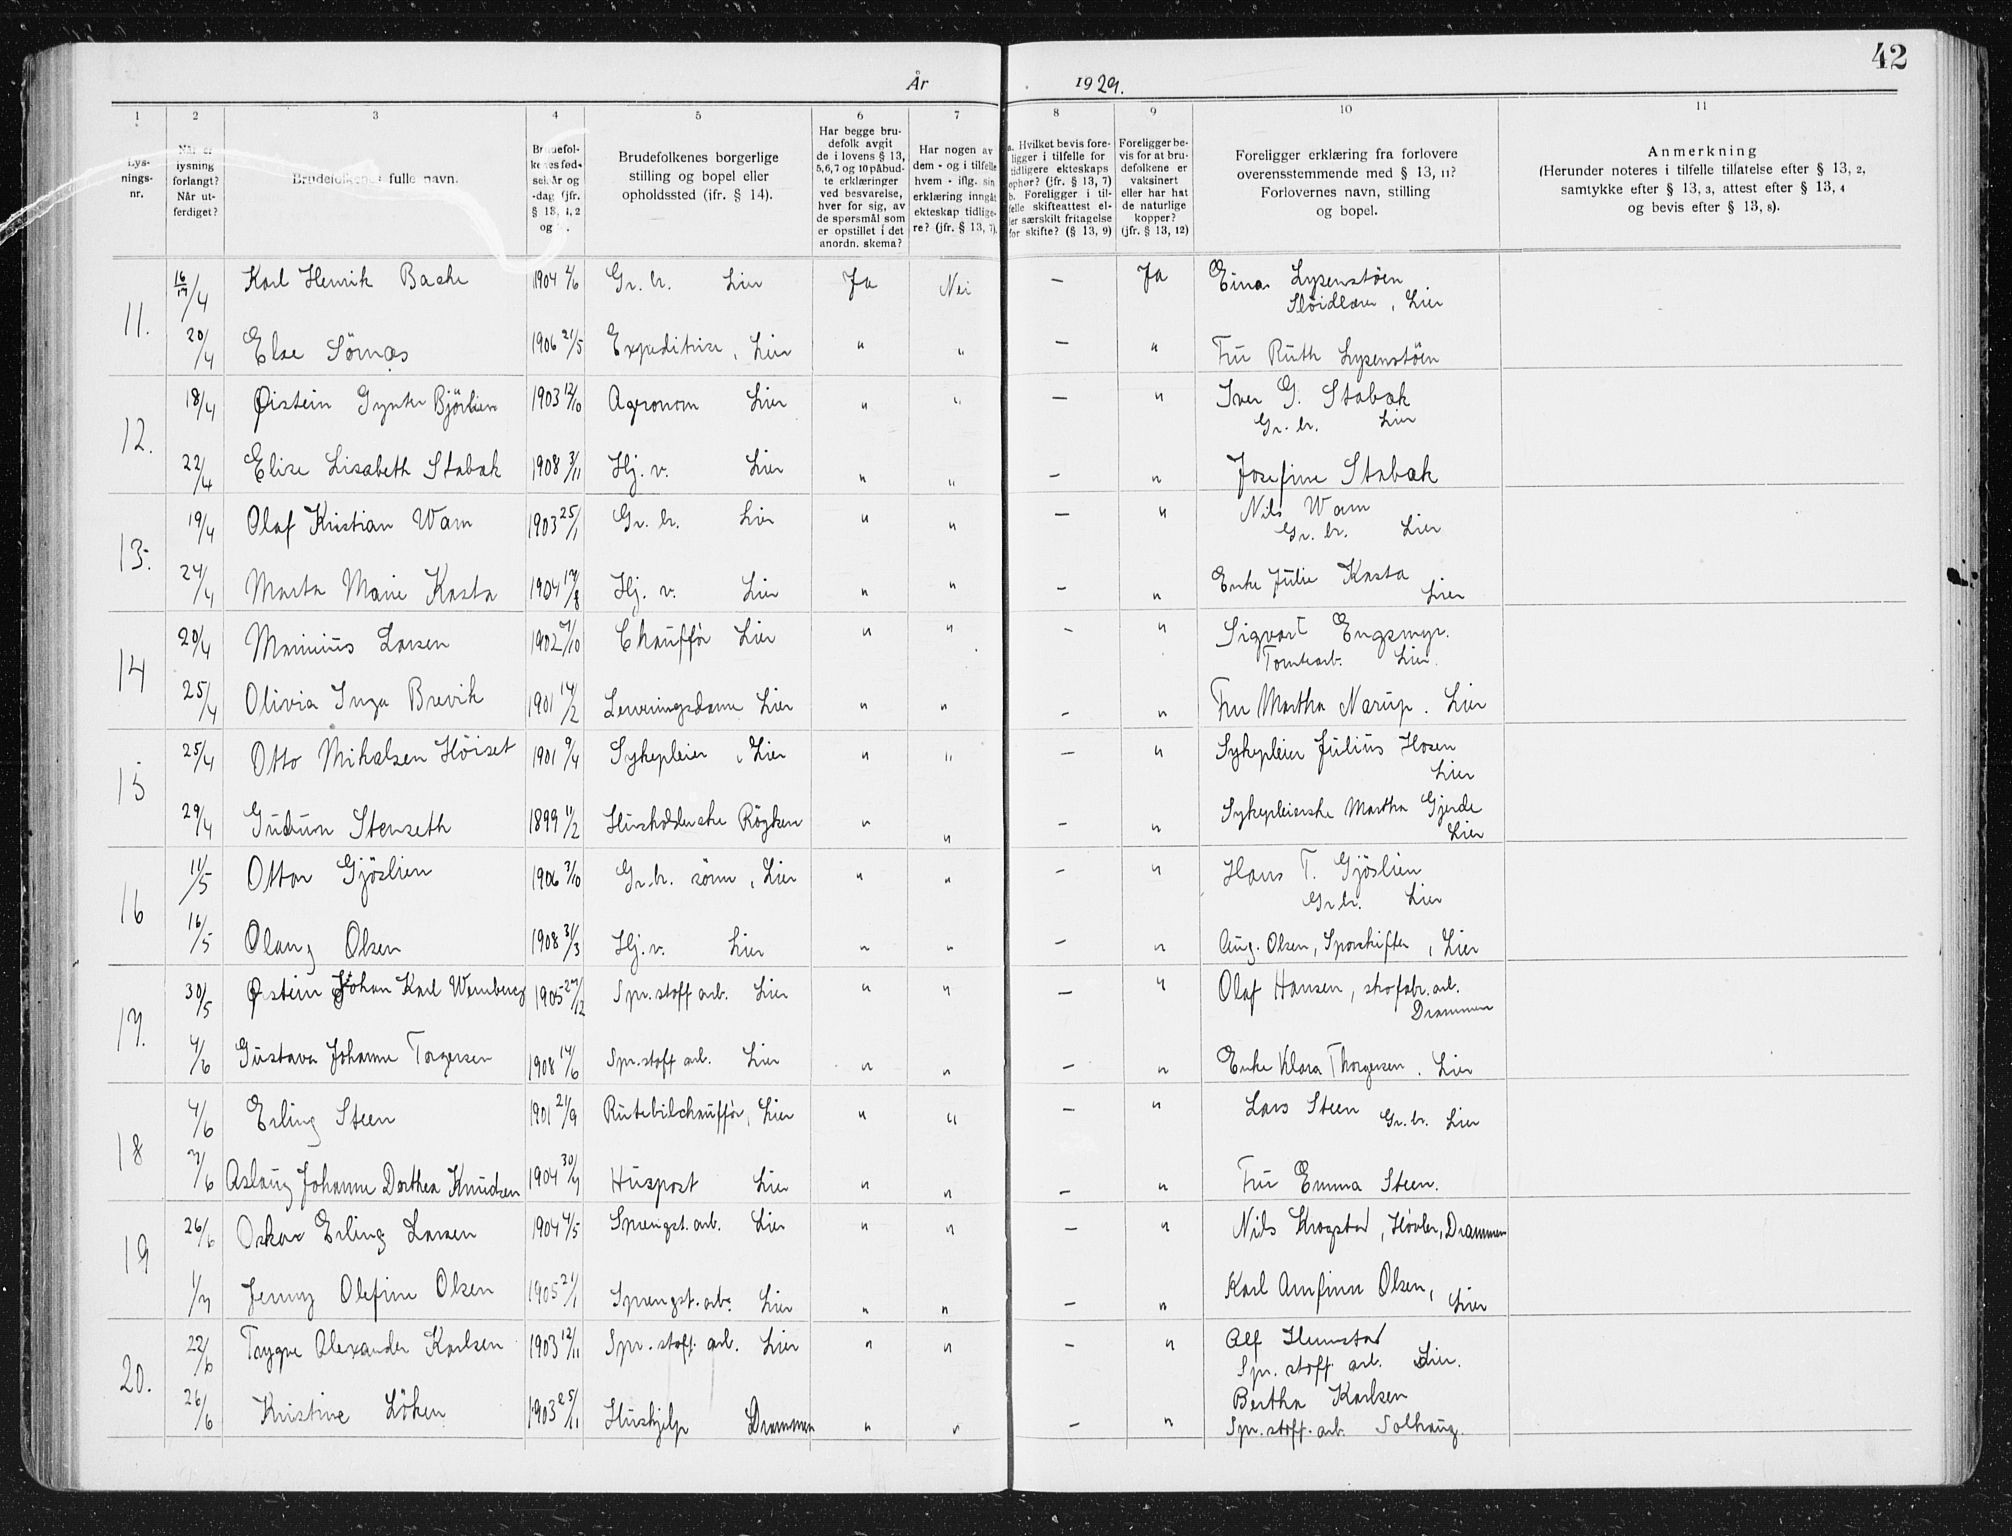 42
År 1929.
1 2 3 4 5 6 7 8 9 10 11
Lys-
nings-
nr.
Når er
lysning
forlangt?
Når ut-
ferdiget?
Brudefolkenes fulle navn.
Brudefol-
kenes fød-
sels år og
-dag (jfr.
§ 13, 1, 2
og
Brudefolkenes borgerlige
stilling og bopel eller
opholdssted (jfr. § 14).
Har begge bru-
defolk avgit
de i lovens § 13,
5, 6, 7 og 10 påbud-
te erklæringer
ved besvarelse,
hver for sig, av
de spørsmål som
er opstillet i det
anordn. skema?
Har nogen av
dem - og i tilfelle
hvem - iflg. sin
erklæring inngåt
ekteskap tidlige-
re? (jfr. § 13, 7).
a. Hvilket bevis fore-
ligger i tilfelle for
tidligere ekteskaps
ophør? (jfr. § 13, 7)
b. Foreligger i til-
felle skifteattest el-
ler særskilt fritagelse
for skifte? (§ 13, 9)
Foreligger be-
vis for at bru-
defolkene er
vaksinert
eller har hat
de naturlige
kopper?
(jfr. § 13, 12)
Foreligger erklæring fra forlovere
overensstemmende med § 13, 11?
Forlovernes navn, stilling
og bopel.
Anmerkning
(Herunder noteres i tilfelle tillatelse efter § 13, 2,
samtykke efter § 13, 3, attest efter § 13, 4
og bevis efter § 13, 8).
11. 16/17/4 Karl Henrik Bache 1904 4/6 Gr. br. Lier Ja Nei — Ja Einar Lysenstöen
Slöidlærer, Lier
20/4 Else Sörnæs 1906 21/5 Expeditrise, Lier " " — " Fru Ruth Lysenstöen
12. 18/4 Øistein Gynter Björlien 1903 12/10 Agronom Lier " " — " Iver G. Stabæk
Gr. br. Lier
22/4 Elise Lisabeth Stabæk 1908 3/11 Hj. v. Lier " " — " Josefine Stabæk
13. 19/4 Olaf Kristian Wam 1903 25/1 Gr. br. Lier " " — " Nils Wam
Gr. br. Lier
24/4 Marta Marie Kasta 1904 17/8 Hj. v. Lier " " — " Enke Julie Kasta
Lier
14 20/4 Marinius Larsen 1902 7/10 Chauffør Lier " " — " Sigvart Engsmyr.
Tomtearb. Lier.
25/4 Olivia Inga Brevik 1901 14/2 Serveringsdame Lier " " — " Fru Martha Narup. Lier
15 25/4 Otto Mikalsen Höiset 1901 9/4 Sykepleier, Lier " " — " Sykepleier Julius Hosen
Lier
29/4 Gudrun Stenseth 1899 11/2 Husholderske Röyken " " — " Sykepleierske Martha Gjerde
Lier
16 11/5 Ottar Gjöslien 1906 3/10 Gr. br. sönn, Lier " " — " Hans T. Gjöslien
Gr. br. Lier
16/5 Olaug Olsen 1908 31/3 Hj. v. Lier " " — " Aug. Olsen, Sporskifter, Lier
17. 30/5 Øistein Johan Karl Wamberg 1905 27/12 Spr. stoff arb. Lier " " — " Olaf Hansen, skofabr. arb.
Drammen
4/6 Gustava Johanne Torgersen 1908 14/6 Spr. stoff arb. Lier " " — " Enke Klara Thorgersen. Lier
18 4/6 Erling Steen 1901 21/9 Rutebilchauffør, Lier " " — " Lars Steen Gr. br. Lier
7/6 Aslaug Johanne Dorthea Knudsen 1904 30/7 Huspost Lier " " — " Fru Emma Steen.
19 26/6 Oskar Erling Larsen 1904 4/5 Sprengst. arb. Lier " " — " Nils Krogstad, Høvler, Drammen
1/7 Jenny Olefine Olsen 1905 21/1 Sprengst. arb. Lier " " — " Karl Arnfinn Olsen,
Lier
20. 22/6 Trygve Alexander Karlsen 1903 12/11 Spr. stoff. arb. Lier " " — " Alf Hemstad
Spr. stoff. arb. Lier.
26/6 Kristine Löken 1903 25/11 Hushjelp Drammen " " — " Bertha Karlsen
Spr. stoff. arb. Solhaug.